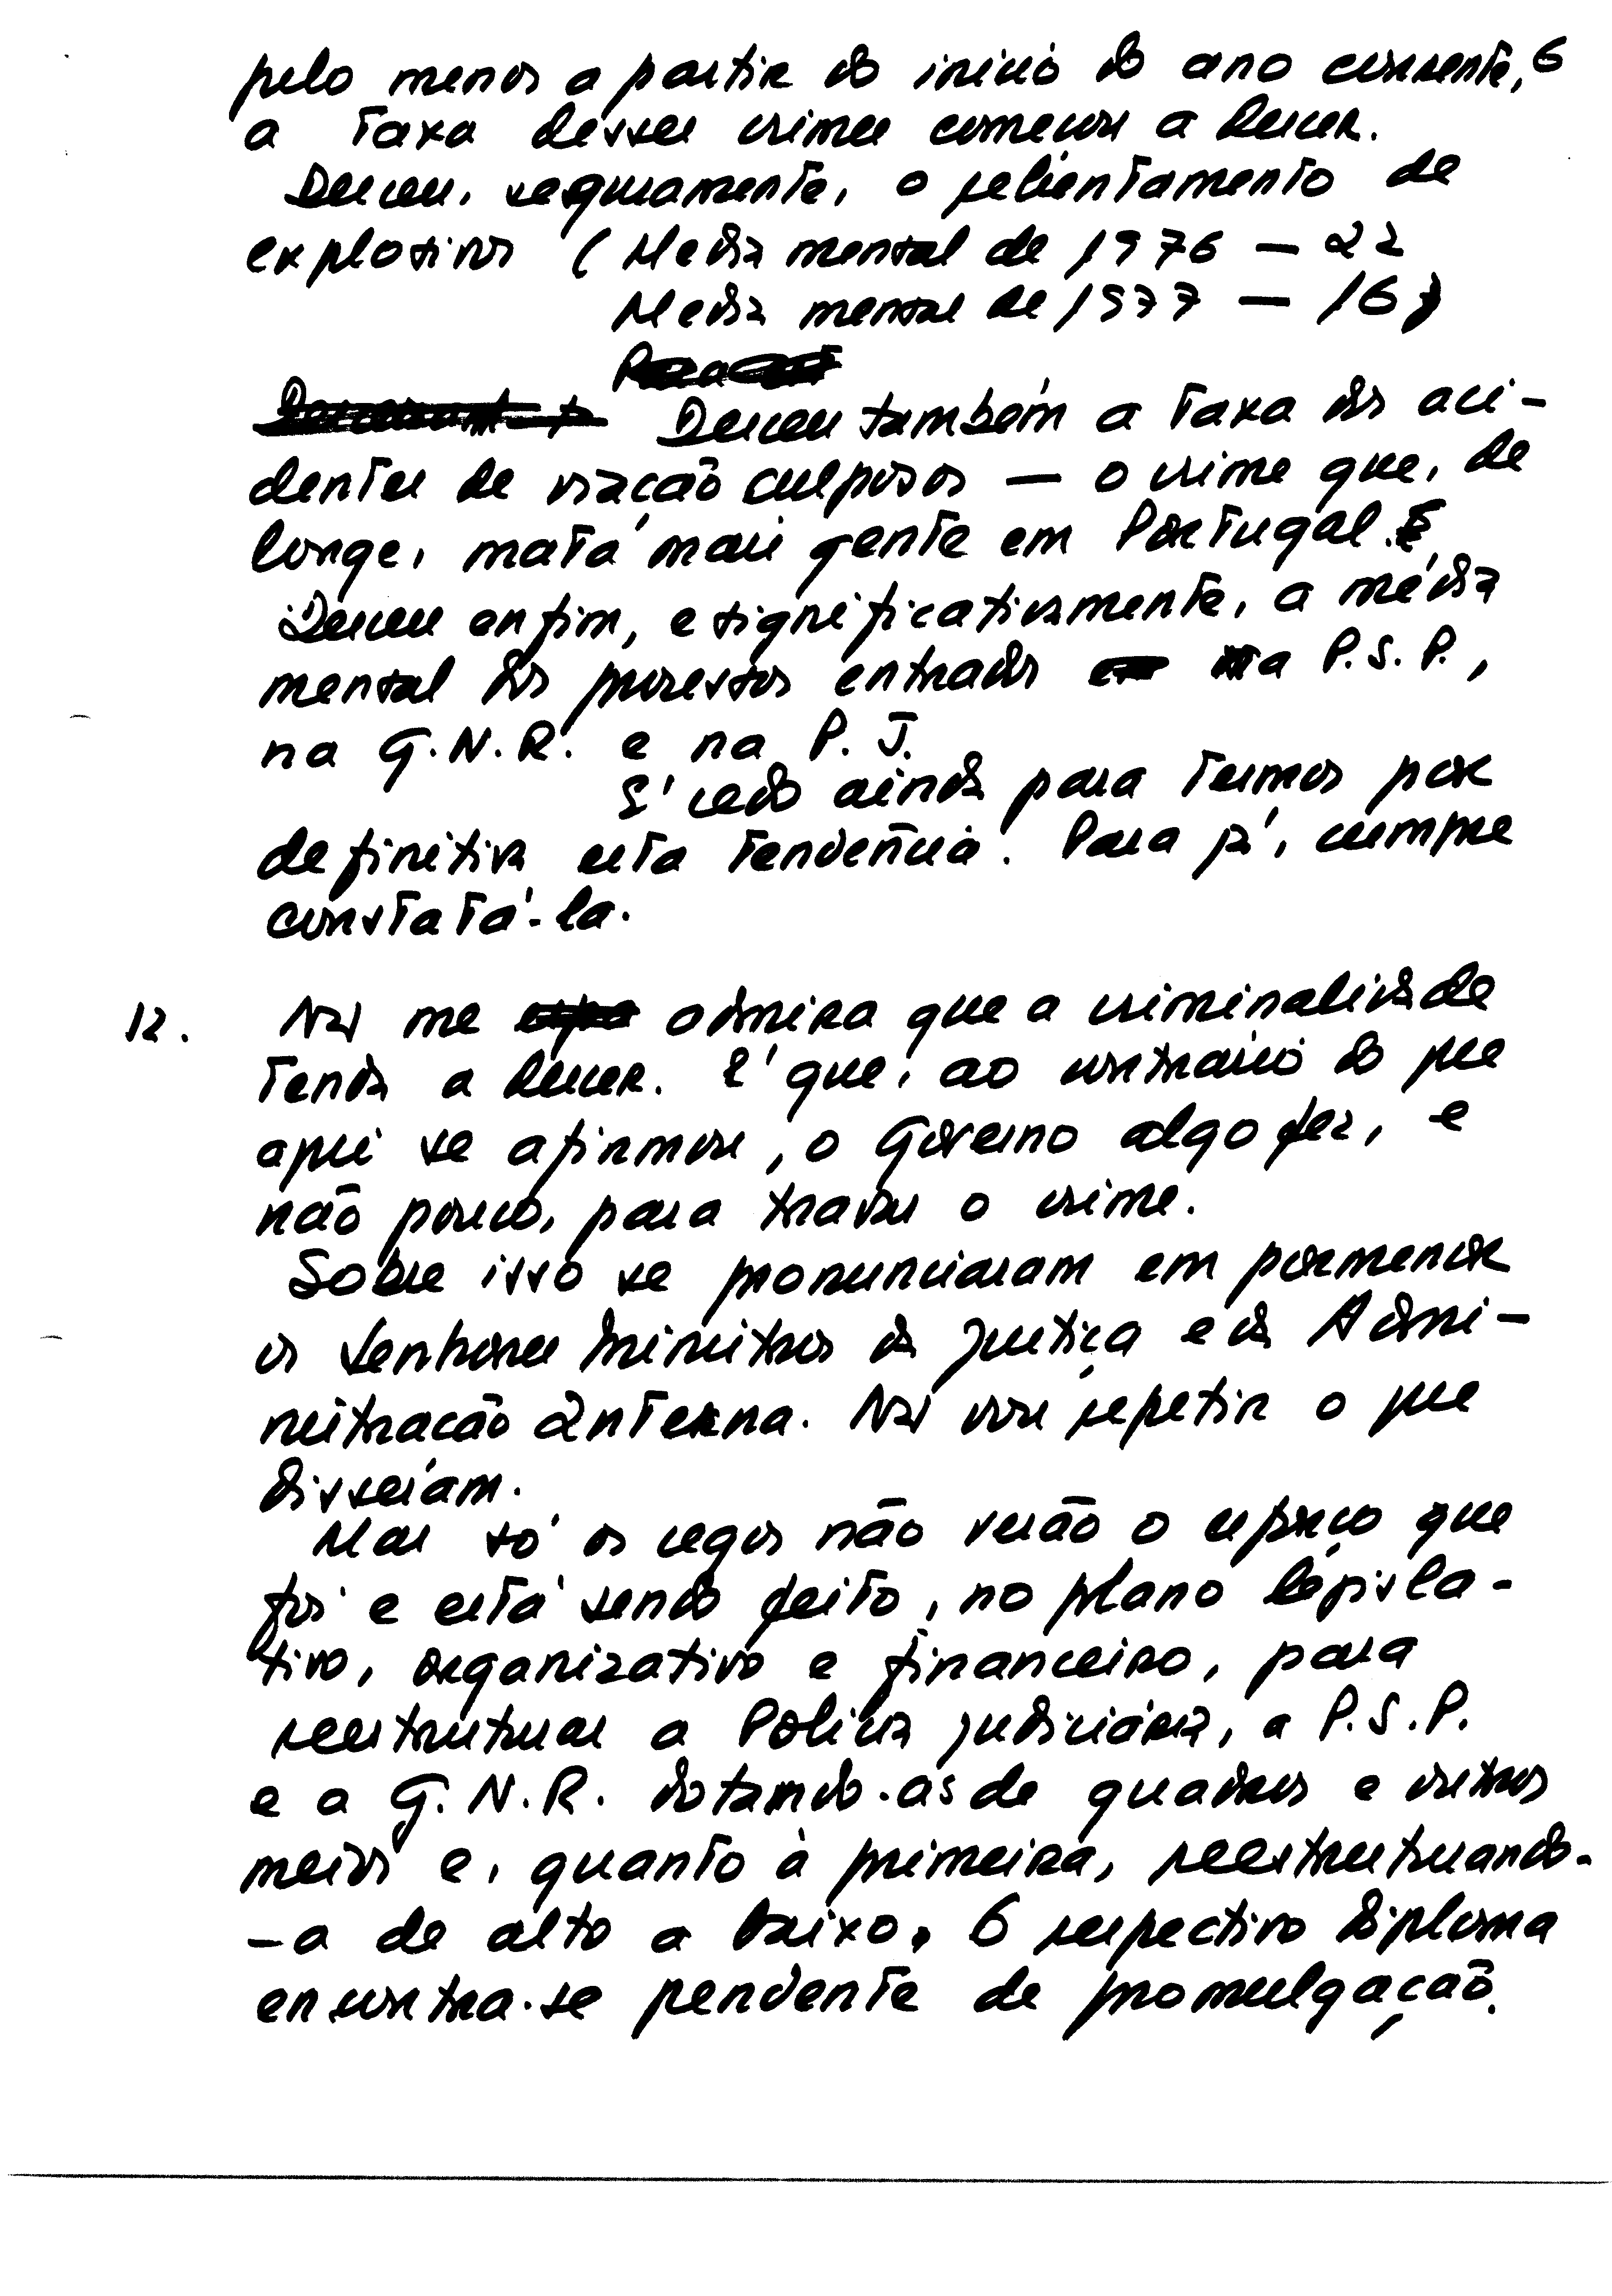 pelo menos a partir do início do ano corrente, 6
a taxa desses crimes começou a descer.
Desceu, seguramente, o rebentamento de
explosivos (Media mensal de 1976 — 22
Media mensal de 1977 — 16)
Desceu também a taxa dos aci-
dentes de viação culposos — o crime que, de
longe, mata mais gente em Portugal.
Desceu enfim, e significativamente, a média
mensal dos processos entrados na P.S.P.,
na G.N.R. e na P.J.
É cedo ainda para termos por
definitiva esta tendência. Para já, cumpre
constatá-la.
12. Não me admira que a criminalidade
tenda a descer. É que, ao contrário do que
aqui se afirmou, o Governo algo fez, e
não pouco, para travar o crime.
Sobre isso se pronunciaram em pormenor
os Senhores Ministros da Justiça e da Admi-
nistração Interna. Não vou repetir o que
disseram.
Mas só os cegos não verão o esforço que
foi e está sendo feito, no plano legisla-
tivo, organizativo e financeiro, para
reestruturar a Polícia Judiciária, a P.S.P.
e a G.N.R. dotando-as de quadros e outros
meios e, quanto à primeira, reestruturando-
-a de alto a baixo. O respectivo diploma
encontra-se pendente de promulgação.